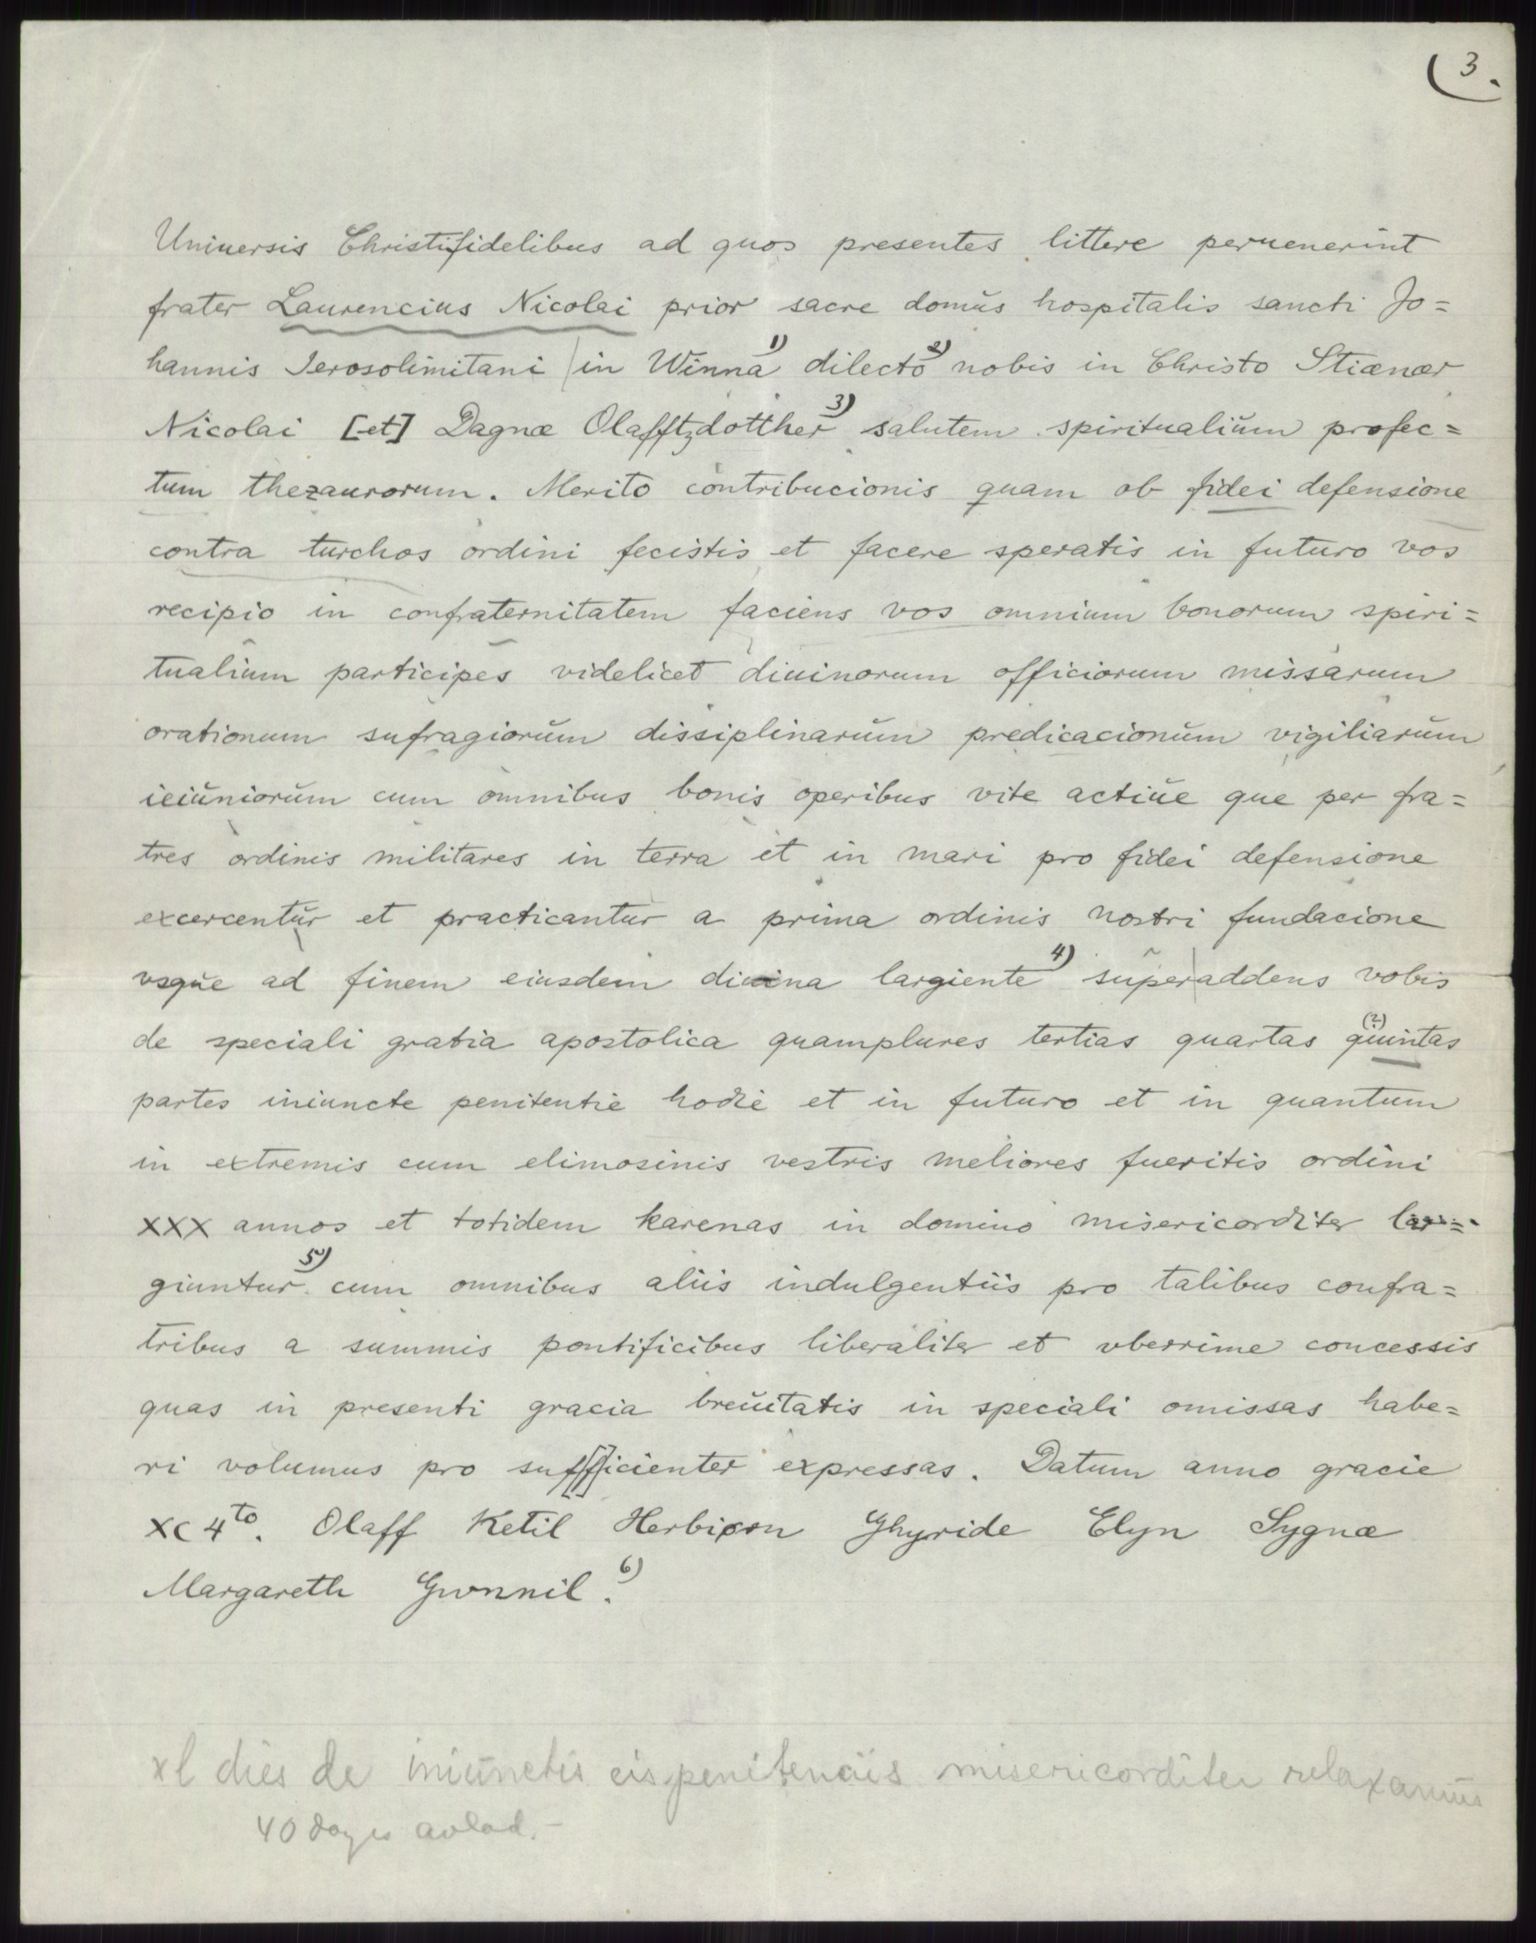 3.
Uniuersis Christifidelibus ad quos presentes littere peruenerint
frater Laurencius Nicolai prior sacre domus hospitalis sancti Jo=
hannis Ierosolimitani in Winna 1) dilecto 2) nobis in Christo Stiænær
Nicolai [et] Dagnæ Olafftzdotther 3) salutem spiritualium profec=
tum thezaurorum. Merito contribucionis quam ob fidei defensione
contra turchos ordini fecistis et facere speratis in futuro vos
recipio in confraternitatem faciens vos omnium bonorum spiri=
tualium participes videlicet diuinorum officiorum missarum
orationum sufragiorum dissiplinarum predicacionum vigiliarum
ieiuniorum cum omnibus bonis operibus vite actiue que per fra=
tres ordinis militares in terra et in mari pro fidei defensione
excercentur et practicantur a prima ordinis nostri fundacione
vsque ad finem eiusdem diuina largiente 4) super|addens vobis
de speciali gratia apostolica quamplures tertias quartas quintas (?)
partes iniuncte penitentie hodie et in futuro et in quantum
in extremis cum elimosinis vestris meliores fueritis ordini
XXX annos et totidem karenas in domino misericorditer lar=
giuntur 5) cum omnibus aliis indulgentiis pro talibus confra=
tribus a summis pontificibus liberaliter et vberrime concessis
quas in presenti gracia breuitatis in speciali omissas habe=
ri volumus pro suf[f]icienter expressas. Datum anno gracie
XC 4to. Olaff Ketil Herbion Ghyride Elyn Sygnæ
Margareth Gwnnil. 6)
xl dies de iniunctis eis penitenciis misericorditer relaxamus
40 dages avlad.-